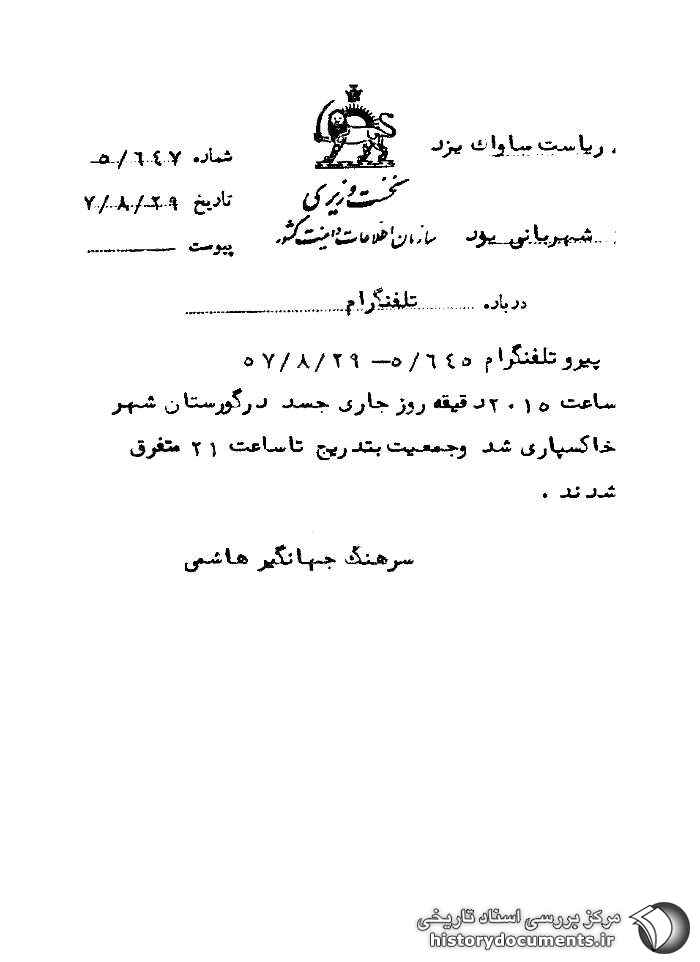 ریاست ساواك یزد
شماره ۵/۶۴۷ـ
نخست وزیری
تاریخ ۷/۸/۲۹
سازمان اطلاعات و امنیت کشور
شهربانی یزد
پیوست
درباره تلفنگرام
پیرو تلفنگرام ۵/۶۴۵ – ۵۷/۸/۲۹
ساعت ۲۰۱۵ دقیقه روز جاری جسد درگورستان شهر
خاکسپاری شد وجمعیت بتدریج تاساعت ۲۱ متفرق
شدند .
سرهنگ جهانگیر هاشمی
مرکز بررسی اسناد تاریخی
historydocuments.ir